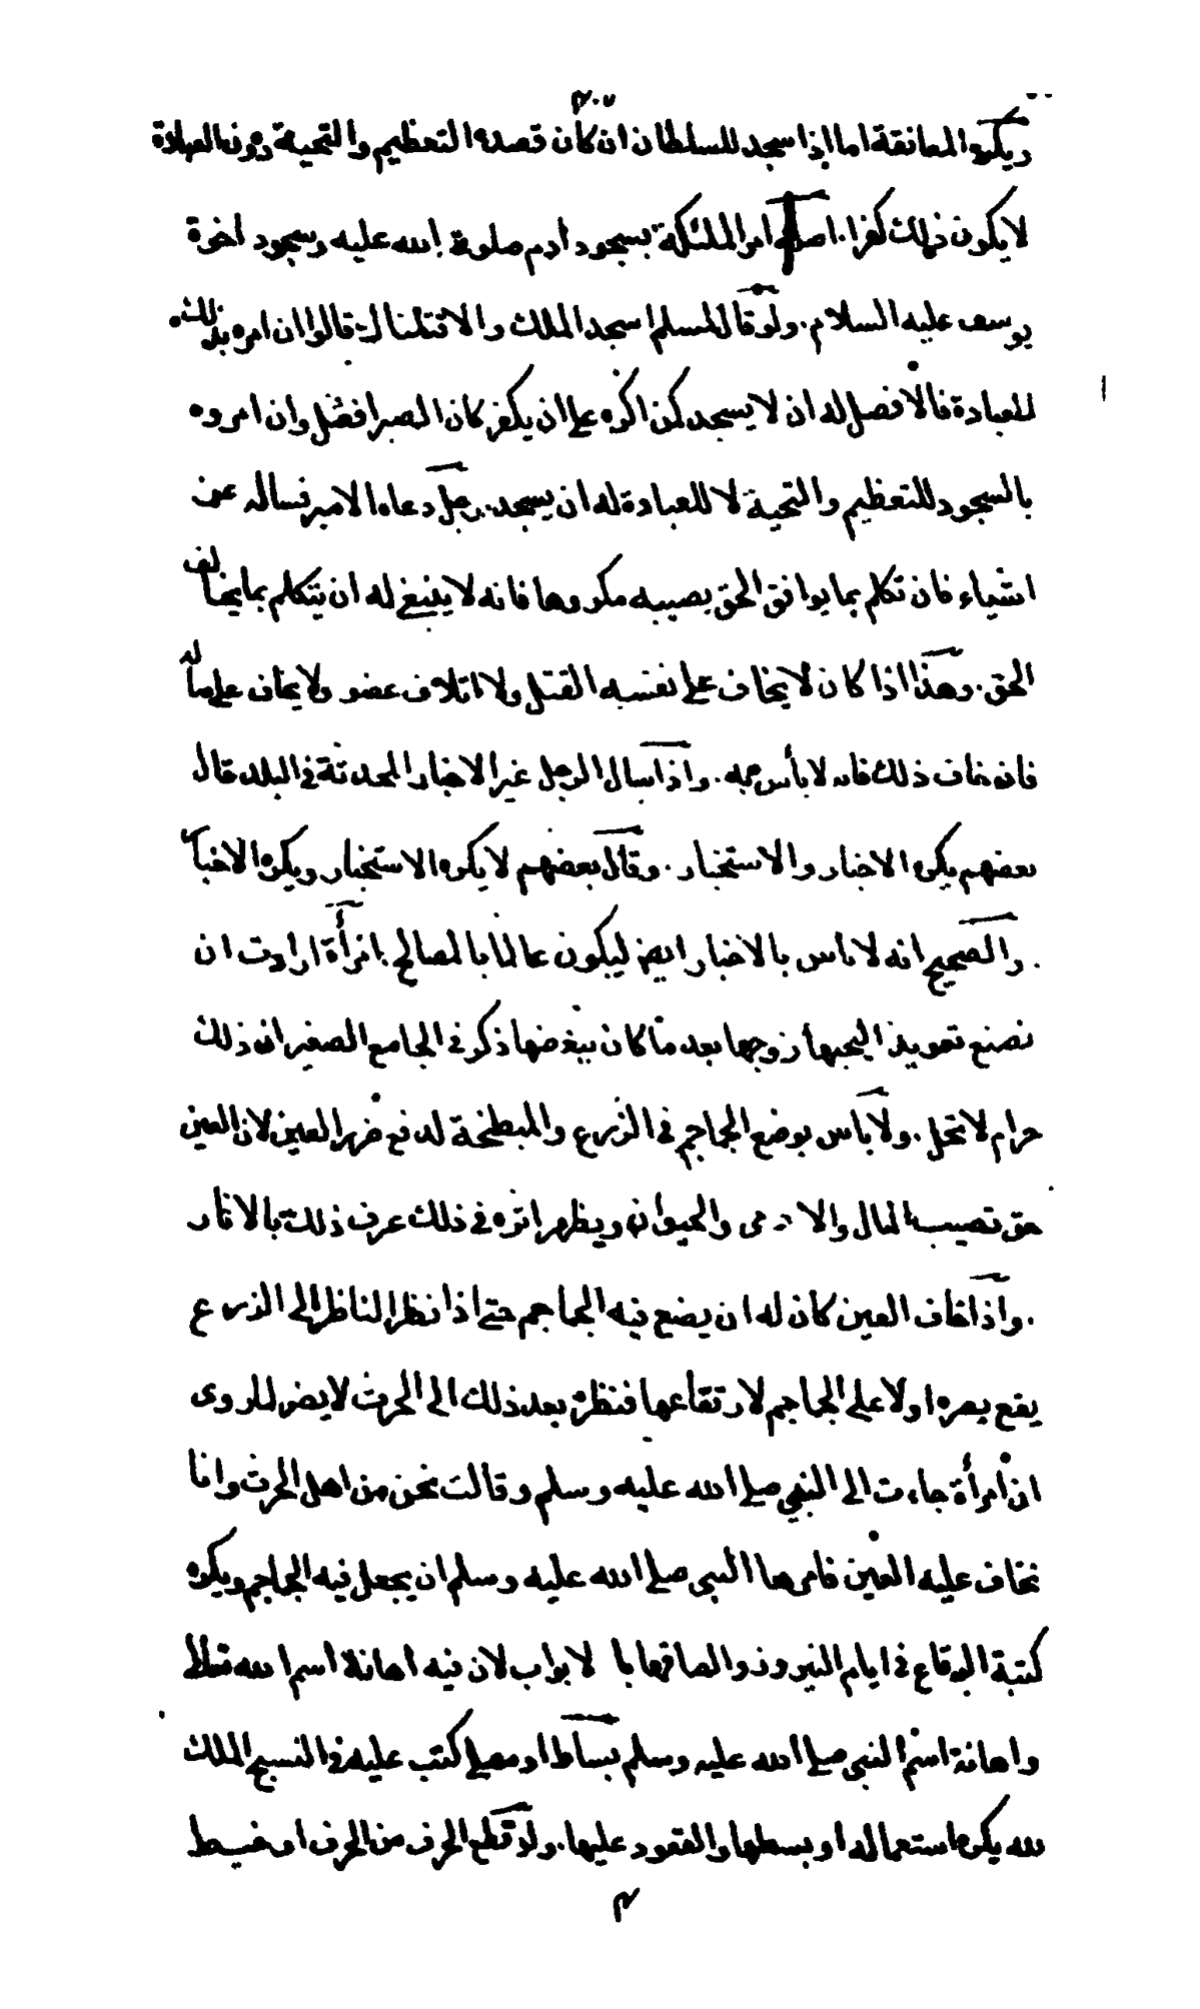 ٢٠٧
ويكره المعانقة اما اذا سجد للسلطان ان كان قصده التعظيم والتحية دون الصلاة
لا يكون ذلك كفرا. اصله امر الملئكة بسجود ادم صلوة الله عليه وسجود اخوة
يوسف عليه السلام. ولو قال لمسلم اسجد الملك والا قتلناك قالوا ان امره بذلك
للعبادة فالافضل له ان لا يسجد كمن اكره على ان يكفر كان الصبر افضل وان امروه
بالسجود للتعظيم والتحية لا للعبادة له ان يسجد. رجل دعاه الامير فساله عن
اشياء فان تكلم بما يوافق الحق يصيبه مكروها فانه لا ينبغي له ان يتكلم بما يخالف
الحق. وهذا اذا كان لا يخاف على نفسه القتل ولا اتلاف عضو ولا يخاف على ماله
فان خاف ذلك فانه لا بأس به. واذا سال الرجل غير الاخبار المحدثة في البلد قال
بعضهم يكره الاخبار والاستخبار. وقال بعضهم لا يكره الاستخبار ويكره الاخبار
. والصحيح انه لا باس بالاخبار ايضا ليكون عالما بالمصالح. امرأة ارادت ان
تصنع تعويذا ليحبها زوجها بعد ما كان يبغضها ذكر في الجامع الصغير ان ذلك
حرام لا تحل. ولا باس بوضع الجماجم في الزرع والمبطخة لدفع ضرر العين لان العين
حق تصيب المال والادمى والحيوان ويظهر اثره في ذلك عرف ذلك بالاثار
. واذا خاف العين كان له ان يضع فيه الجماجم حتى اذا نظر الناظر الى الزرع
يقع بصره اولا على الجماجم لارتفاعها فنظره بعد ذلك الى الحرث لا يضر لما روى
ان امرأة جاءت الى النبي صلى الله عليه وسلم وقالت نحن من اهل الحرث وانا
نخاف عليه العين فامرها النبى صلى الله عليه وسلم ان يجعل فيه الجماجم ويكره
كتبة الرقاع في ايام النيروز والصاقها بالابواب لان فيه اهانة اسم الله تعالى
واهانة اسم النبى صلى الله عليه وسلم بساط او مصلى كتب عليه في النسج الملك
لله يكره استعماله او بسطها والقعود عليها. ولو قطع الحرف من الحرف او خيط
٢